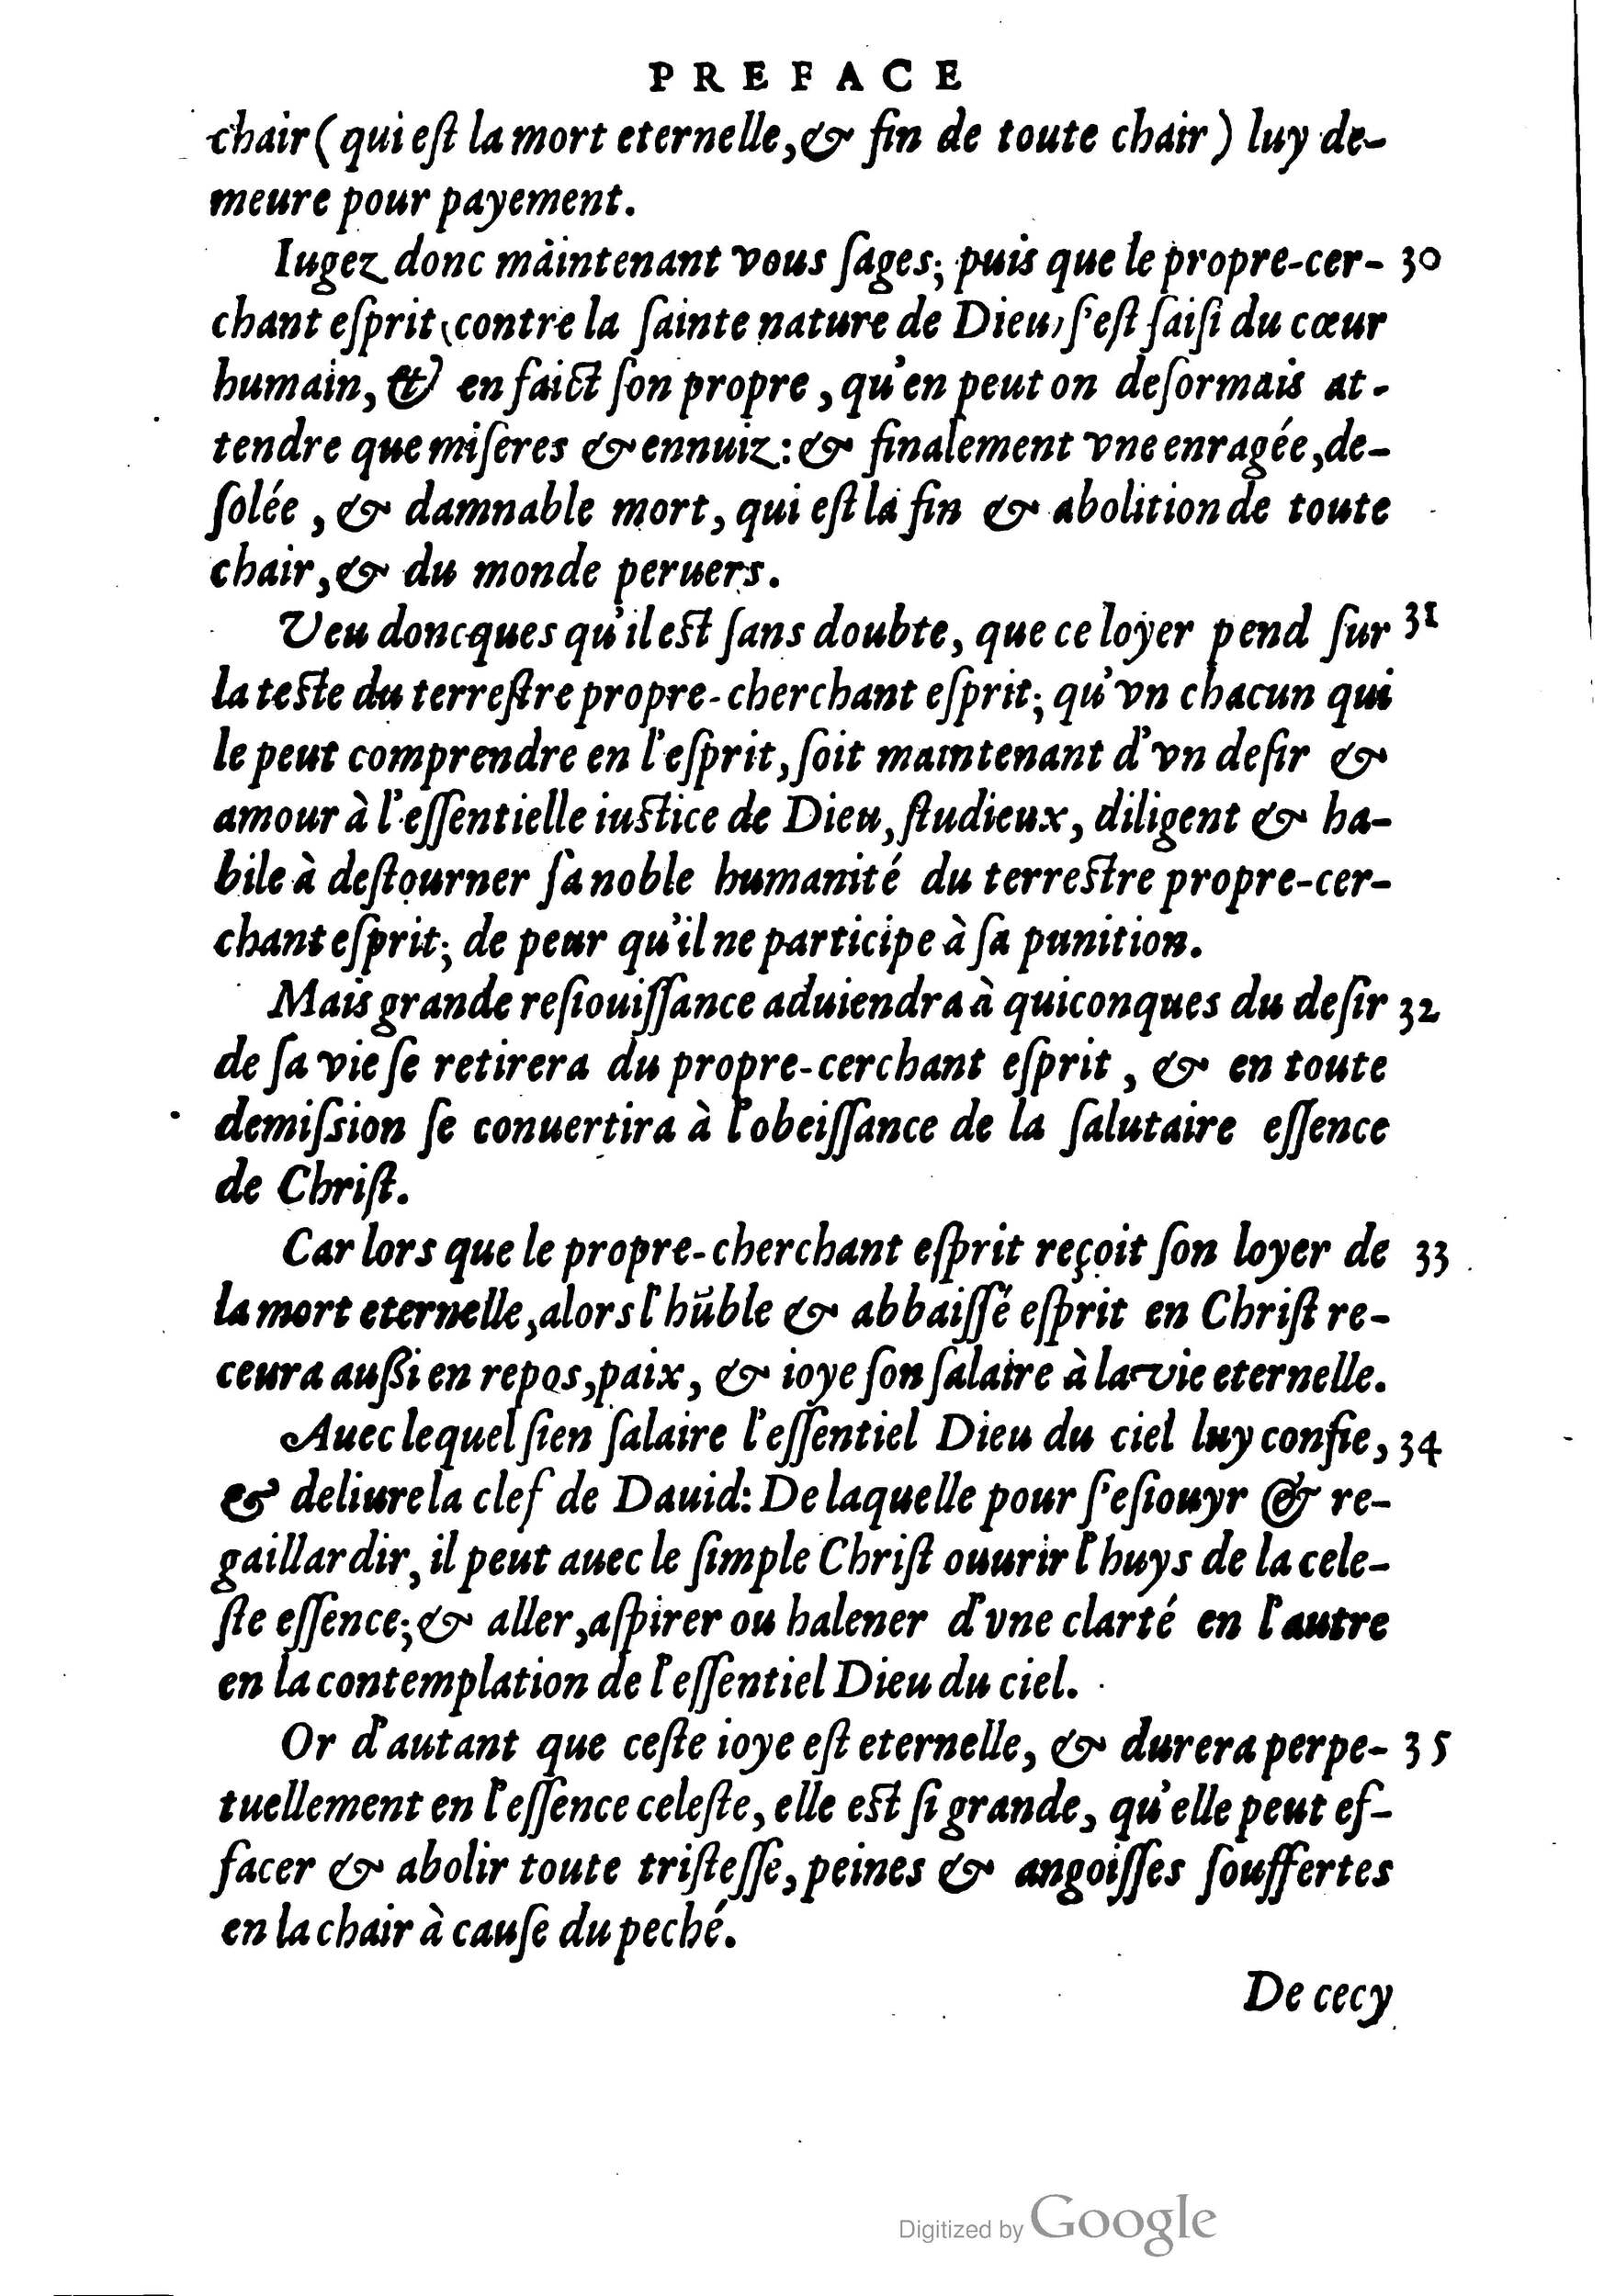 PREFACE
chair (qui eſt la mort eternelle, & fin de toute chair) luy de-
meure pour payement.
Iugez donc maintenant vous ſages; puis que le propre-cer- 30
chant eſprit (contre la ſainte nature de Dieu) ſ'eſt ſaiſi du cœur
humain, & en faict ſon propre, qu'en peut on deſormais at-
tendre que miſeres & ennuiz: & finalement vne enragée, de-
ſolée, & damnable mort, qui eſt la fin & abolition de toute
chair, & du monde peruers.
Veu doncques qu'il eſt ſans doubte, que ce loyer pend ſur 31
la teſte du terreſtre propre-cherchant eſprit; qu'vn chacun qui
le peut comprendre en l'eſprit, ſoit maintenant d'vn deſir &
amour à l'eſſentielle iuſtice de Dieu, ſtudieux, diligent & ha-
bile à deſtourner ſa noble humanité du terreſtre propre-cer-
chant eſprit; de peur qu'il ne participe à ſa punition.
Mais grande reſiouiſſance aduiendra à quiconques du deſir 32
de ſa vie ſe retirera du propre-cerchant eſprit, & en toute
demiſsion ſe conuertira à l'obeiſſance de la ſalutaire eſſence
de Chriſt.
Car lors que le propre-cherchant eſprit reçoit ſon loyer de 33
la mort eternelle, alors l'hūble & abbaiſſé eſprit en Chriſt re-
ceura außi en repos, paix, & ioye ſon ſalaire à la vie eternelle.
Auec lequel ſien ſalaire l'eſſentiel Dieu du ciel luy confie, 34
& deliure la clef de Dauid: De laquelle pour ſ'eſiouyr & re-
gaillardir, il peut auec le ſimple Chriſt ouurir l'huys de la cele-
ſte eſſence; & aller, aſpirer ou halener d'vne clarté en l'autre
en la contemplation de l'eſſentiel Dieu du ciel.
Or d'autant que ceſte ioye eſt eternelle, & durera perpe- 35
tuellement en l'eſſence celeſte, elle eſt ſi grande, qu'elle peut ef-
facer & abolir toute triſteſſe, peines & angoiſſes ſouffertes
en la chair à cauſe du peché.
De cecy
Digitized by Google